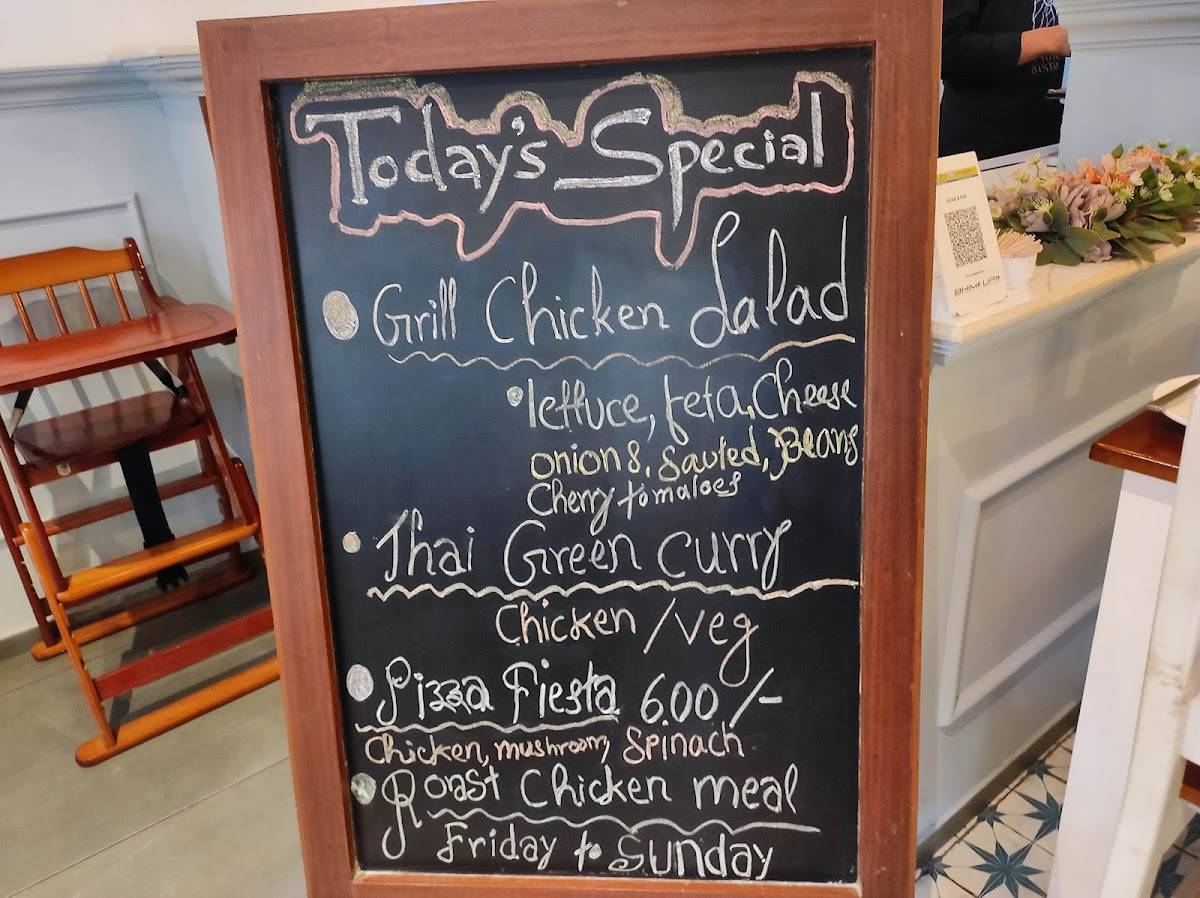 Today's Special
Grill Chicken Salad
lettuce, feta, Cheese
onions, Sauted, Beans
Cherry tomatoes
Thai Green curry
Chicken / veg
Pizza Fiesta 600/-
Chicken, mushroom, Spinach
Roast Chicken meal
Friday to Sunday
SCAN & PAY
BHIM UPI
BISTRO